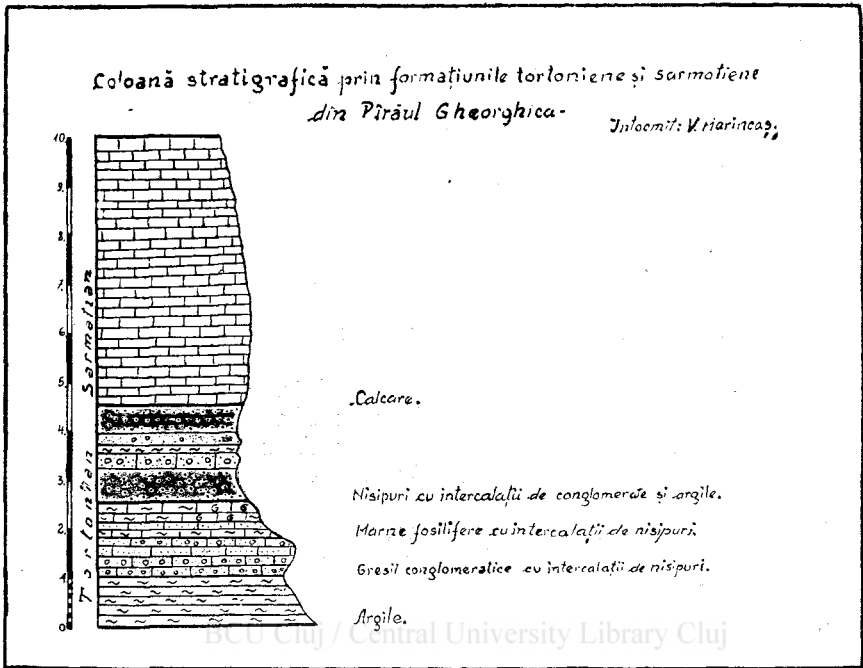 Coloană stratigrafică prin formațiunile tortoniene și sarmatiene
din Pîrăul Gheorghica-
Întocmit: V. Marincaș.
10.
9.
8.
7.
6.
5.
4.
3.
2.
1.
0
Sarmațian
Tortonian
Calcare.
Nisipuri cu intercalații de conglomerate și argile.
Marne fosilifere cu intercalații de nisipuri.
Gresii conglomeratice cu intercalații de nisipuri.
Argile.
BCU Cluj / Central University Library Cluj